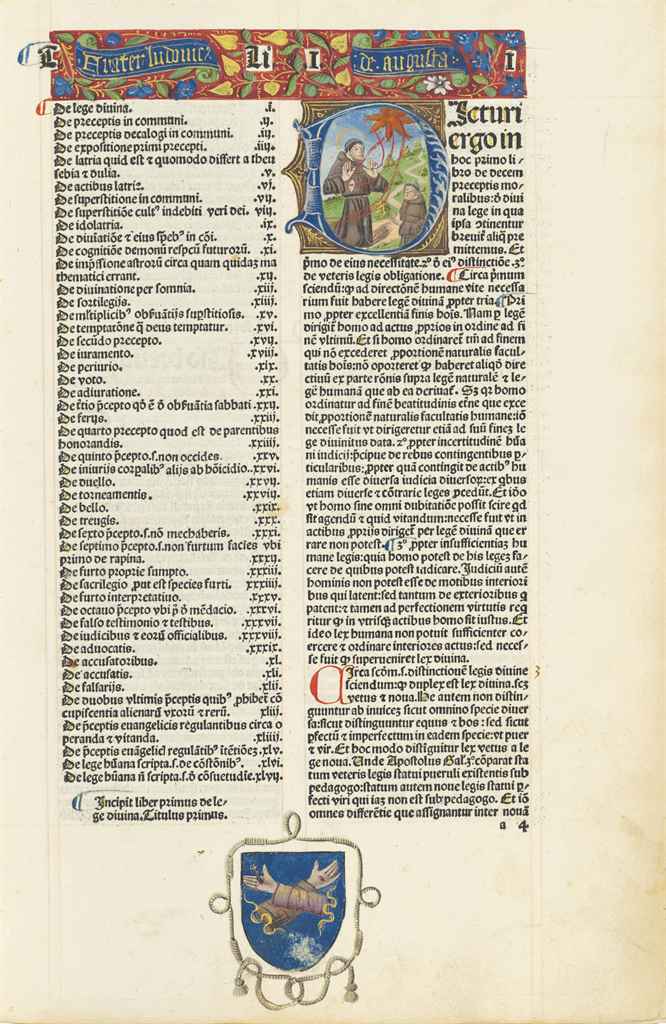 T Frater ludouic⁹ Li I de augusta I
De lege diuina. .i.
De preceptis in communi. .ij.
De preceptis decalogi in communi. .iij.
De expositione primi precepti. .iiij.
De latria quid est ⁊ quomodo differt a theu
sebia ⁊ dulia. .v.
De actibus latrie. .vi.
De superstitione in communi. .vij.
De superstitiōe cult⁹ indebiti veri dei. viij.
De idolatria. .ix.
De diuiatiōe ⁊ eius speb⁹ in cōi. .x.
De cognitiōe demonū respcū futurorū. .xi.
De imp̄ssione astrorū circa quam quidaz ma
thematici errant. .xij.
De diuinatione per somnia. .xiij.
De sortilegijs. .xiiij.
De mltiplicib⁹ obẜuātijs sup̱stitiosis. .xv.
De temptatōne q̄ deus temptatur. .xvi.
De secūdo precepto. .xvij.
De iuramento. .xviij.
De periurio. .xix.
De voto. .xx.
De adiuratione. .xxi.
De t̄tio p̄cepto qō ē ō obẜuātia sabbati .xxij.
De ferijs. .xxiij.
De quarto precepto quod est de parentibus
honorandis. .xxiiij.
De quinto p̄cepto.s.non occides. .xxv.
De iniurijs corꝑalib⁹ alijs ab hōicidio. .xxvi.
De duello. .xxvij.
De torneamentis. .xxviij.
De bello. .xxix.
De treugis. .xxx.
De sexto p̄cepto.s.nō mechaberis. .xxxi.
De septimo p̄cepto.s.non furtum facies vbi
primo de rapina. .xxxij.
De furto proprie sumpto. .xxxiij.
De sacrilegio ꝓut est species furti. .xxxiiij.
De furto interpretatiuo. .xxxv.
De octauo p̄cepto vbi p̄ ō mēdacio. .xxxvi.
De falso testimonio ⁊ testibus. .xxxvij.
De iudicibus ⁊ eorū officialibus. .xxxviij.
De aduocatis. .xxxix.
De accusatoribus. .xl.
De accusatis. .xli.
De falsarijs. .xlij.
De duobus vltimis p̄ceptis quib⁹ ꝓhibet̄ cō
cupiscentia alienarū vxorū ⁊ rerū. xliij.
De p̄ceptis euangelicis regulantibus circa o
peranda ⁊ vitanda. .xliiij.
De p̄ceptis euāgelicl regulātib⁹ ītētiōeȝ .xlv.
De lege hūana scripta.s.de cōstōnib⁹. .xlvi.
De lege hūana n̄ scripta.s.ō cōsuetudīe.xlvij.
Incipit liber primus de le-
ge diuina. Titulus primus.
Dicturi
ergo in
hoc primo li-
bro de decem
preceptis mo-
ralibus: ō diui
na lege in qua
ipsa ↄtinentur
breuit̄ aliq̄ pre
mittemus. Et
p̄mo de eius necessitate. 2⁰ ō ei⁹ distinctiōe. 3⁰
de veteris legis obligatione. Circa p̄mum
sciendū: ꝙ ad directōnē humane vite necessa
rium fuit habere legē diuinā ꝓpter tria. Pri
mo ꝓpter excellentiā finis hoīs. Nam ꝑ legē
dirigit̄ homo ad actus ꝓprios in ordine ad fi
nē vltimū. Et si homo ordinaret̄ tm̄ ad finem
qui nō excederet ꝓportionē naturalis facul-
tatis hoīs: nō oporteret ꝙ haberet aliqō dire
ctiuū ex parte rōnis supra legē naturalē ⁊ le-
gē humanā que ab ea deriuat̄. Sȝ qꝛ homo
ordinatur ad finē beatitudinis et̄ne que exce
dit ꝓportionē naturalis facultatis humane: iō
necesse fuit vt dirigeretur etiā ad suū finez le
ge diuinitus data. 2⁰ ꝓpter incertitudinē hūa
ni iudicij: p̄cipue de rebus contingentibus ꝑ-
ticularibus: ꝓpter quā contingit de actib⁹ hu
manis esse diuersa iudicia diuersoꝝ: ex qbus
etiam diuerse ⁊ cōtrarie leges ꝓcedūt. Et iōo
vt homo sine omni dubitatōe possit scire qd
sit agendū ⁊ quid vitandum: necesse fuit vt in
actibus ꝓprijs dirigat̄ per legē diuinā que er
rare non potest. 3⁰ ꝓpter insufficientiaȝ hu
mane legis: quia homo potest de his legeȝ fa-
cere de quibus potest iudicare. Judiciū autē
hominis non potest esse de motibus interiori
bus qui latent: sed tantum de exterioribus q̄
patent: ⁊ tamen ad perfectionem virtutis req̄
ritur ꝙ in vtrisqȝ actibus homo sit iustus. Et
ideo lex humana non potuit sufficienter co-
ercere ⁊ ordinare interiores actus: sed neces-
se fuit ꝙ superueniret lex diuina.
Circa scōm.s.distinctiouē legis diuine
sciendum: ꝙ duplex est lex diuina.scȝ
vetus ⁊ noua. De autem non distin-
guuntur ab inuiceȝ sicut omnino specie diuer
sa: sicut distinguuntur equus ⁊ bos: sed sicut
ꝑfectū ⁊ imperfectum in eadem specie: vt puer
⁊ vir. Et hoc modo distīguitur lex vetus a le
ge noua. Unde Apostolus Gal. 3⁰. cōparat sta
tum veteris legis statui pueruli existentis sub
pedagogo: statum autem noue legis statui ꝑ-
fecti viri qui iaȝ non est sub pedagogo. Et iō
omnes differētie que assignantur inter nouā
a 4